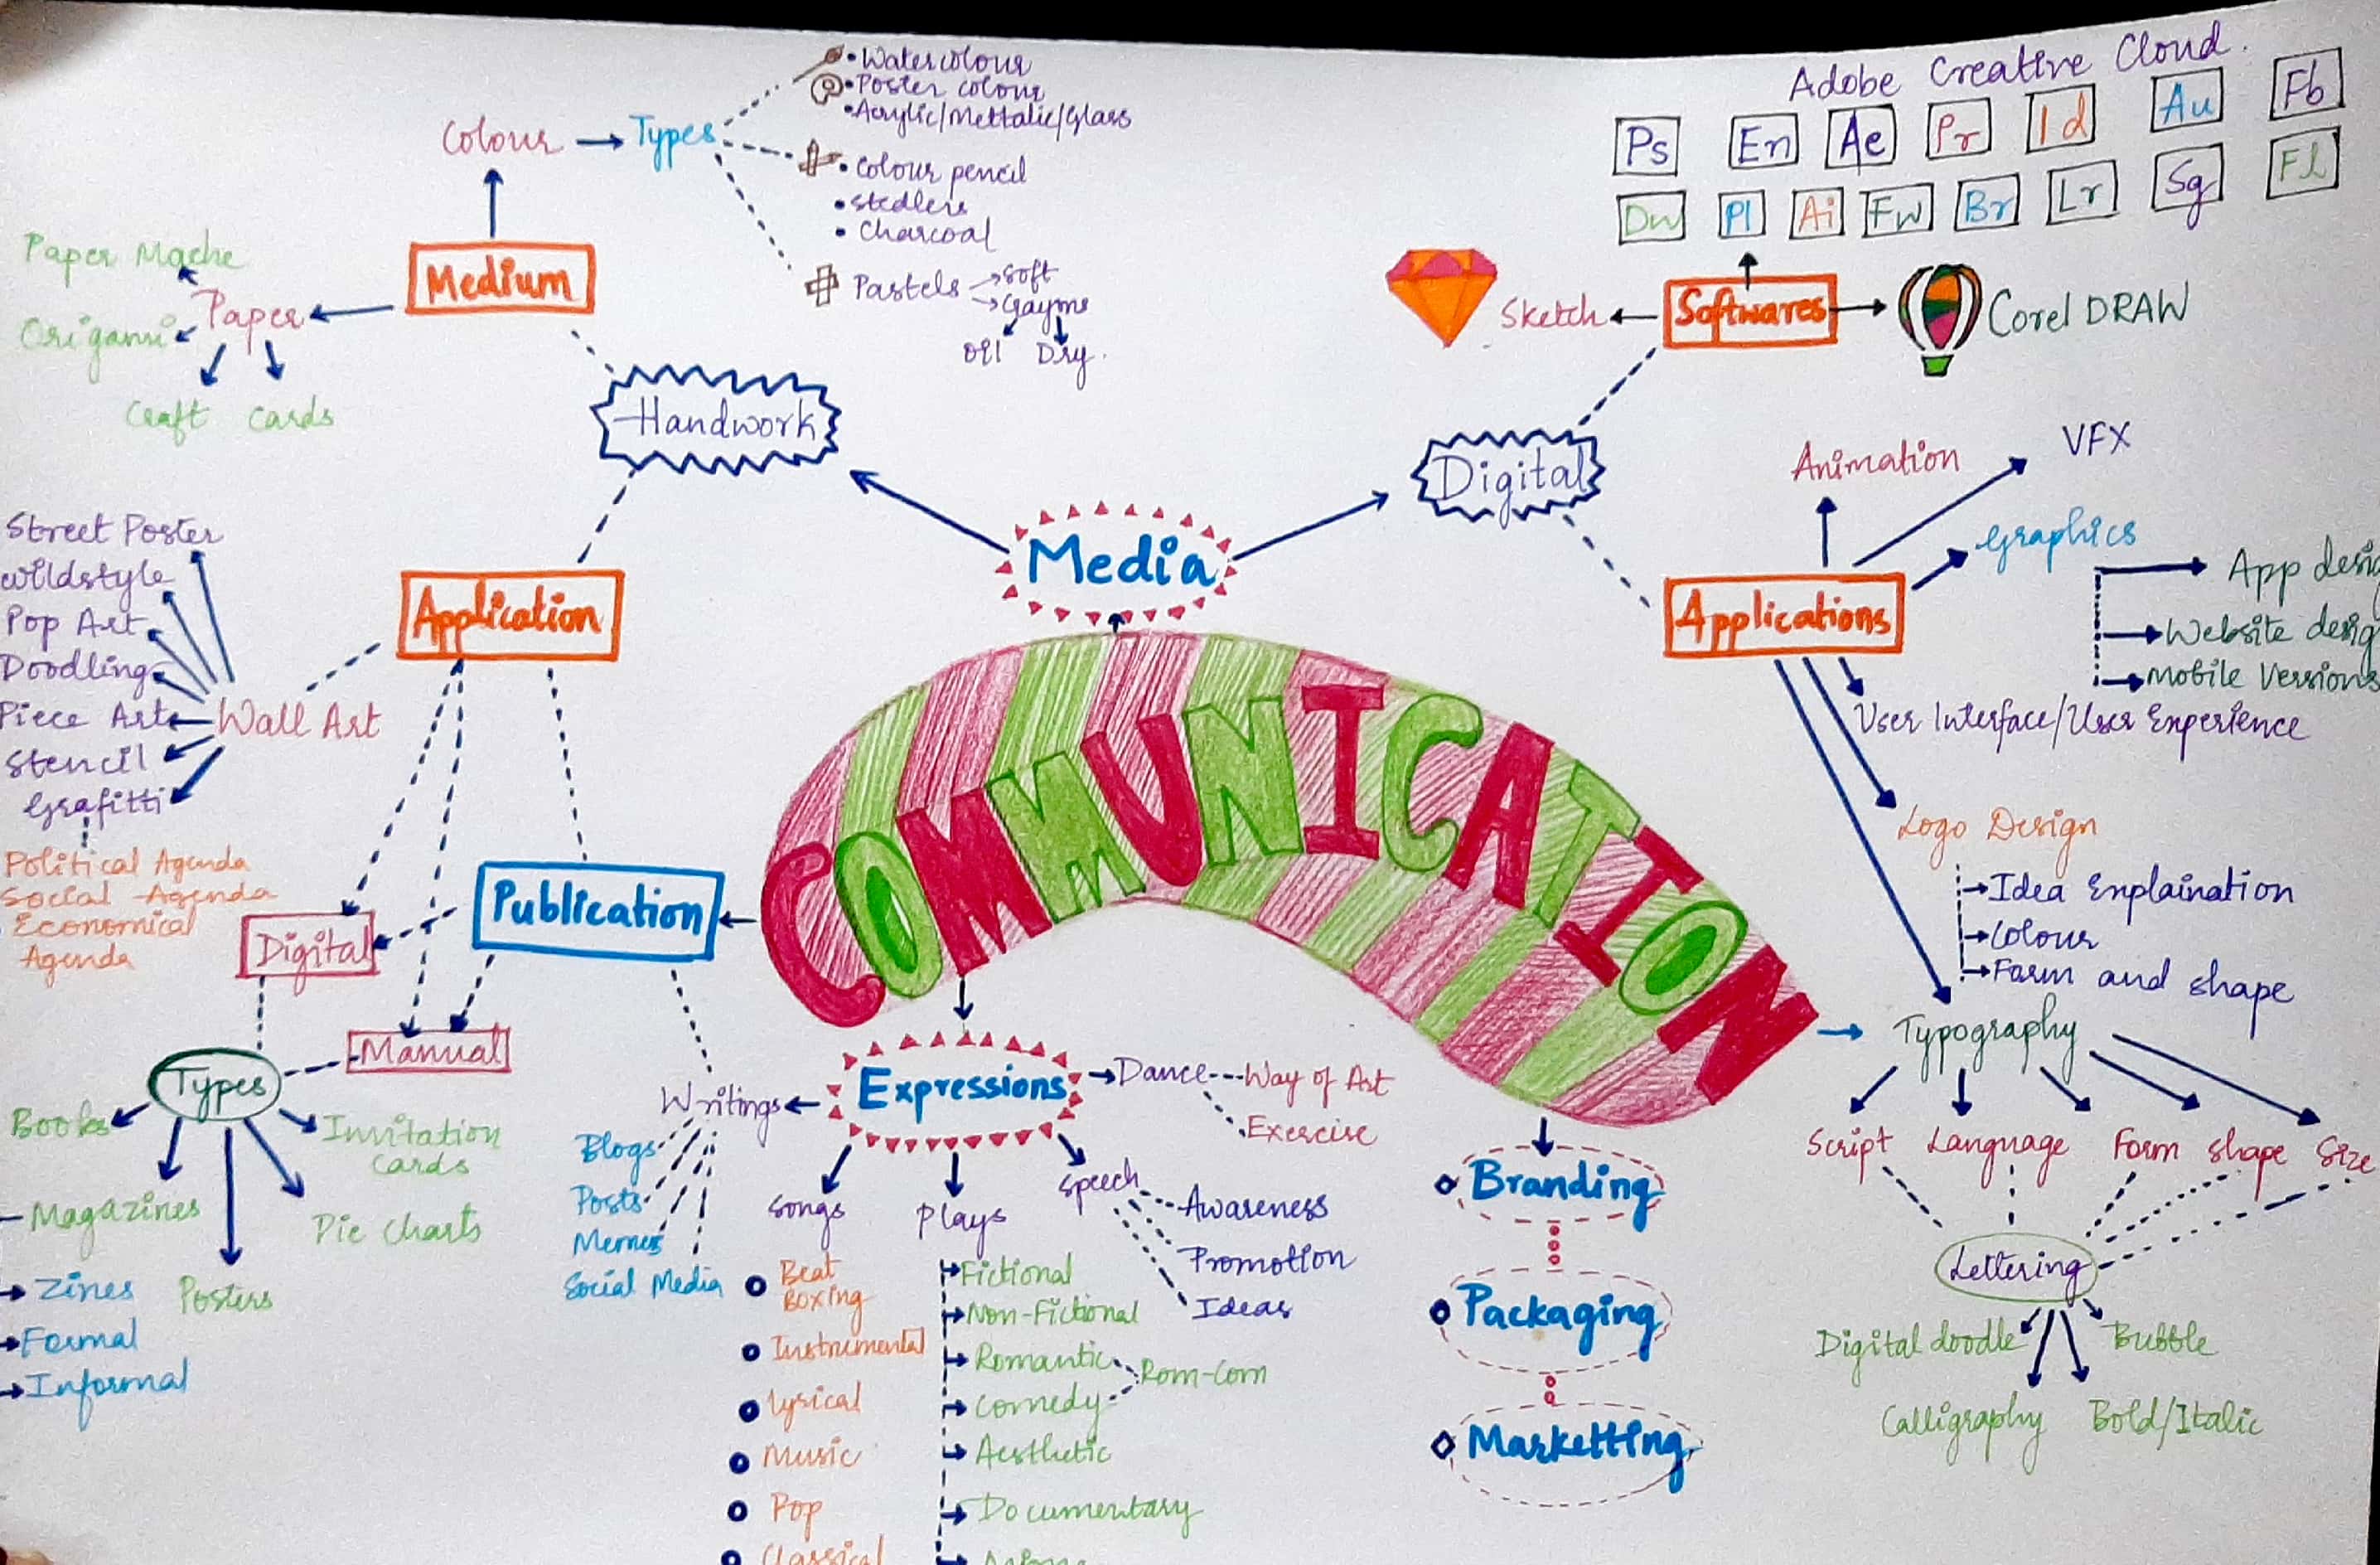 Adobe Creative Cloud.
Ps En Ae Pr Id Au Fb
Dw Pl Ai Fw Br Lr Sg Fl
Softwares
Sketch
Corel DRAW
Colour
Types
Watercolour
Poster colour
Acrylic/Mettalic/Glass
Colour pencil
Stedlers
Charcoal
Pastels
Soft
Oil Dry.
Medium
Paper
Paper Mache
Origami
Craft Cards
Handwork
Digital
Media
Application
Wall Art
Street Poster
Wildstyle
Pop Art
Doodling
Piece Art
Stencil
Grafitti
Political Agenda
Social Agenda
Economical
Agenda
Applications
Animation
VFX
Graphics
Website
Mobile Versions
User Interface/User Experience
Logo Design
Idea Explaination
Colour
Form and shape
Typography
Script Language Form shape Size
Lettering
Digital doodle
Bubble
Calligraphy
Bold/Italic
COMMUNICATION
Publication
Digital
Manual
Types
Books
Invitation
Cards
Magazines
Pie Charts
Posters
Zines
Formal
Informal
Expressions
Writings
Blogs
Posts
Memes
Social Media
Dance
Way of Art
Exercise
Songs
Plays
Speech
Awareness
Promotion
Ideas
Beat
Boxing
Instrumental
Lyrical
Music
Pop
Classical
Fictional
Non-Fictional
Romantic
Comedy
Rom-Com
Aesthetic
Documentary
Branding
Packaging
Marketting